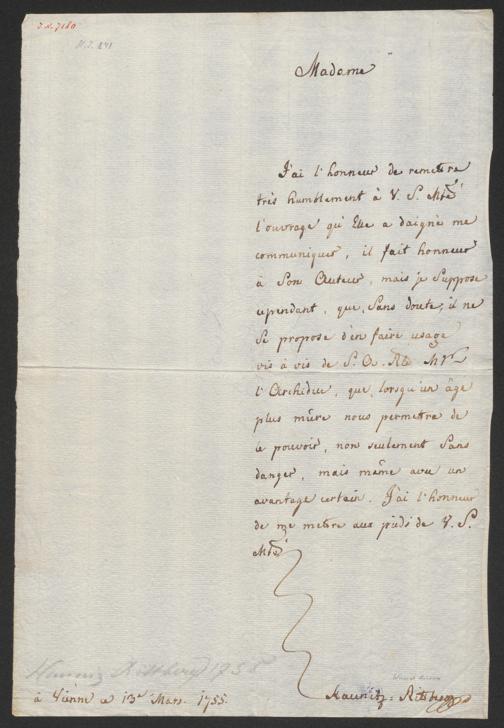 J.N. 7180
Madame
J'ai l'honneur de remettre
très humblement à V. S. Mté
l'ouvrage qu'Elle a daigné me
communiquer, il fait honneur
à Son Auteur, mais je Suppose
cependant, que, Sans doute, il ne
Se propose d'en faire usage
vis à vis de S. A. Rle Mgr
l'Archiduc, que, lorsqu'un âge
plus mûre nous permettra de
le pouvoir, non seulement Sans
danger, mais même avec un
avantage certain. J'ai l'honneur
de me mettre aux pieds de V. S.
Mté
Kaunitz Rittberg 1755
à Vienne ce 13e Mars. 1755.
Kaunitz-Rittberg